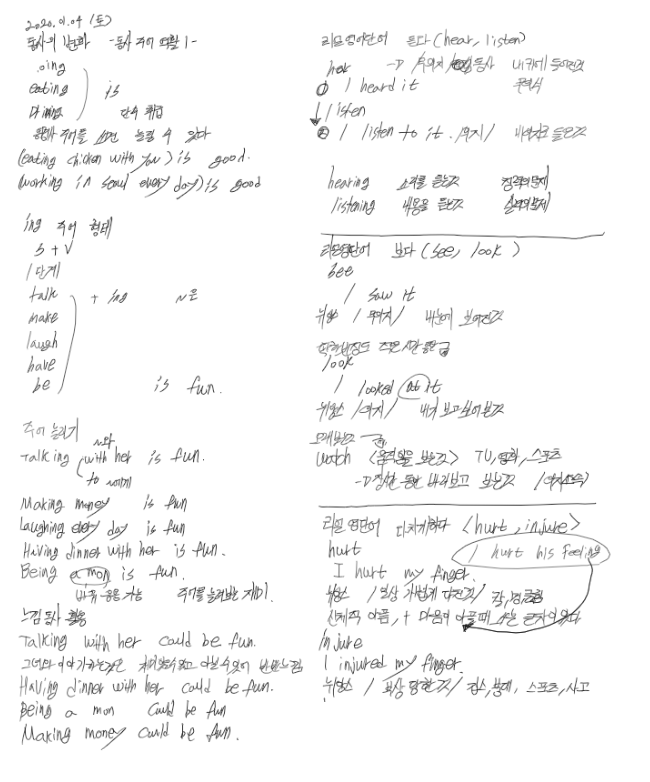 2020.01.04 (토)
동사의 변화 -동사 주어 역할 1-
ing
eating
is
단수 취급
주어를 늘릴 수 있다
(eating chicken with you) is good.
(working in seoul every day) is good
ing 주어 형태
S + V
1단계
talk + ing ~은
make
laugh
have
be is fun.
주어 늘리기
~와
Talking with her is fun.
to ~에게
Making money is fun
Laughing every day is fun
Having dinner with her is fun.
Being a mon is fun.
바꿔 응용 가능 주어를 늘려보는 재미.
느낌 동사 활용
Talking with her could be fun.
그녀와 이야기하는것은
Having dinner with her could be fun.
Being a mon could be fun
Making money could be fun.
리얼영어단어 듣다 (hear, listen)
hear
내 귀에 들어온것
I heard it
무의식
listen
I listen to it. /의지/
hearing 소리를 듣는것 청력의 문제
listening 내용을 듣는것 실력의 문제
리얼영단어 보다 (see, look)
see
I saw it
뉘앙스 / 무의지 / 내눈에 보여진것
look
I looked at it
뉘앙스 /의지/ 내가 보고싶어본것
watch <움직임을 보는것> TV, 영화, 스포츠
일정한 동안 바라보고 보는것 /의지
리얼 영단어 다치게하다 <hurt, injure>
hurt
I hurt his feeling
I hurt my finger.
뉘앙스 / 일상 가볍게 다친것/
신체적 아픔, + 마음이 아플때
injure
I injured my finger.
뉘앙스 / 부상 당한것 / 깁스, 붕대, 스포츠, 사고